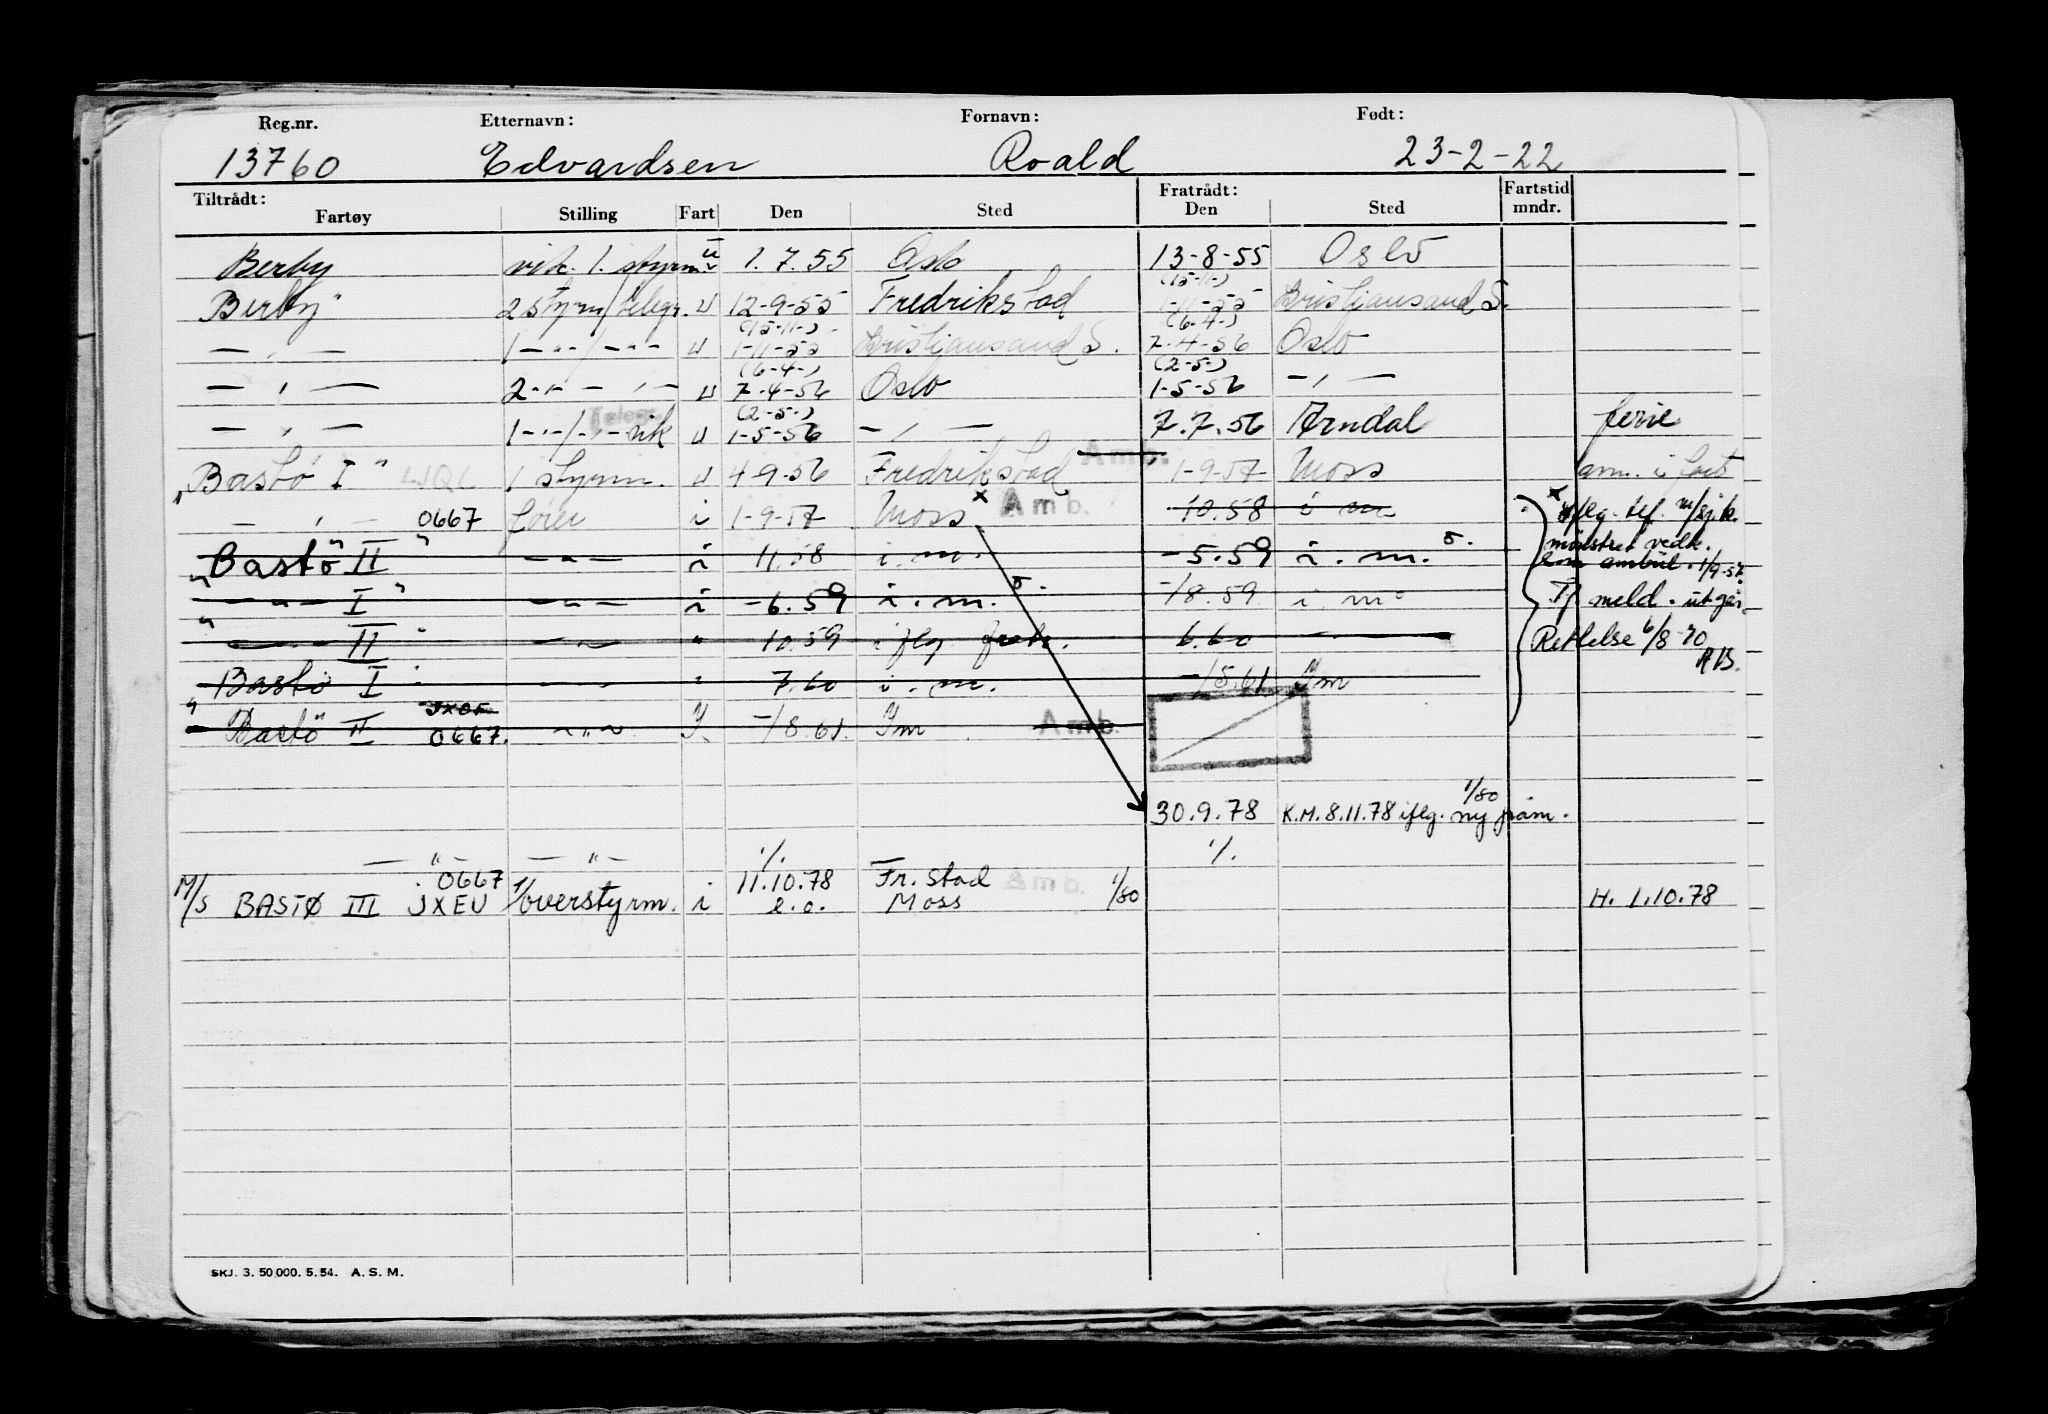 Reg.nr. Etternavn: Fornavn: Født:
13760 Edvardsen Roald 23-2-22
Tiltrådt: Fratrådt: Fartstid
Fartøy Stilling Fart Den Sted Den Sted mndr.
Berby vik. 1. styrm u 1.7.55 Oslo 13-8-55 Oslo
(15-11-)
Berby" 2 styrm/telegr. u 12-9-55 Fredrikstad 1-11-55 Kristjansand S.
(15-11-) (6-4-)
— " — 1 - " - / - " - u 1-11-55 Kristjansand S. 7-4-56 Oslo
(6-4-) (2-5-)
— " — 2 - " - - " - u 7-4-56 Oslo 1-5-56 — " —
Telegr. (2-5-)
— " — 1 - " - / - " - vik u 1-5-56 — " — 7.7.56 Arndal ferie
"Bastö I" LJQL 1 styrm. u 4-9-56 Fredrikstad Amb. 1-9-57 Moss am. i fart
— " — 0667 fører i 1-9-57 Moss x Amb. 10.58 i m x iflg. tlf. m/sj.k.
"Bastö II" - " - i 11.58 i. m. -5.59 i. m. mönstret vedk.
som ambul. 1/9-57.
" - " - I " - " - i -6.59 i. m. -/8.59 i. m. meld. utgår
" - " - II " - " - " 10.59 iflg fratr. 6.60 - " - Rettelse 6/8-70
RB.
Bastö I " - " - " 7.60 i. m. -/5.61 Ym
JXOF
"Bastö II 0667. - " - Y -/8.61. Ym Amb.
1/80
30.9.78 K.M. 8.11.78 iflg. ny fråm.
— " — — " — ./. ./.
0667 11.10.78 Fr.stad Amb.
M/S BASTØ III JXEU 1/overstyrm. i e.o. Moss 1/80 H. 1.10.78
SKJ. 3. 50 000. 5. 54. A. S. M.